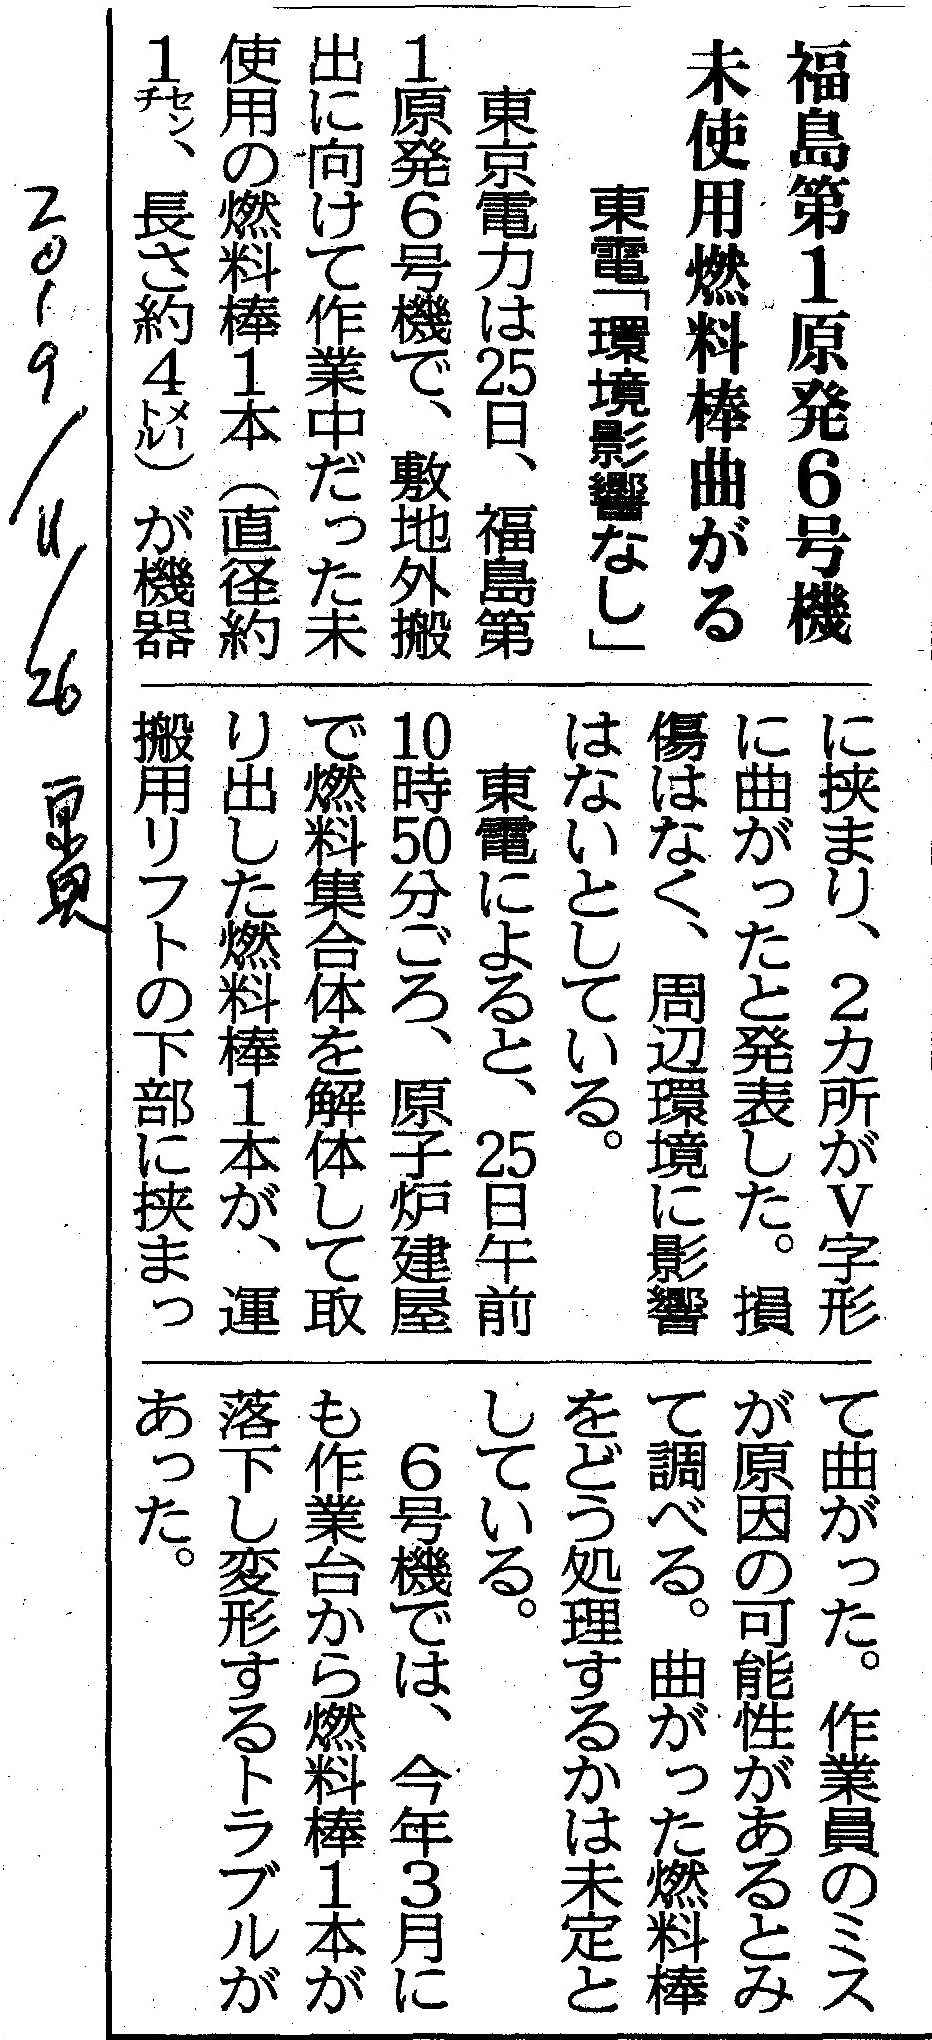 福島第1原発6号機
未使用燃料棒曲がる
東電「環境影響なし」
東京電力は25日、福島第
1原発6号機で、敷地外搬
出に向けて作業中だった未
使用の燃料棒1本（直径約
1センチ、長さ約4メートル）が機器
に挟まり、2カ所がV字形
に曲がったと発表した。損
傷はなく、周辺環境に影響
はないとしている。
東電によると、25日午前
10時50分ごろ、原子炉建屋
で燃料集合体を解体して取
り出した燃料棒1本が、運
搬用リフトの下部に挟まっ
て曲がった。作業員のミス
が原因の可能性があるとみ
て調べる。曲がった燃料棒
をどう処理するかは未定と
している。
6号機では、今年3月に
も作業台から燃料棒1本が
落下し変形するトラブルが
あった。
2019/11/26